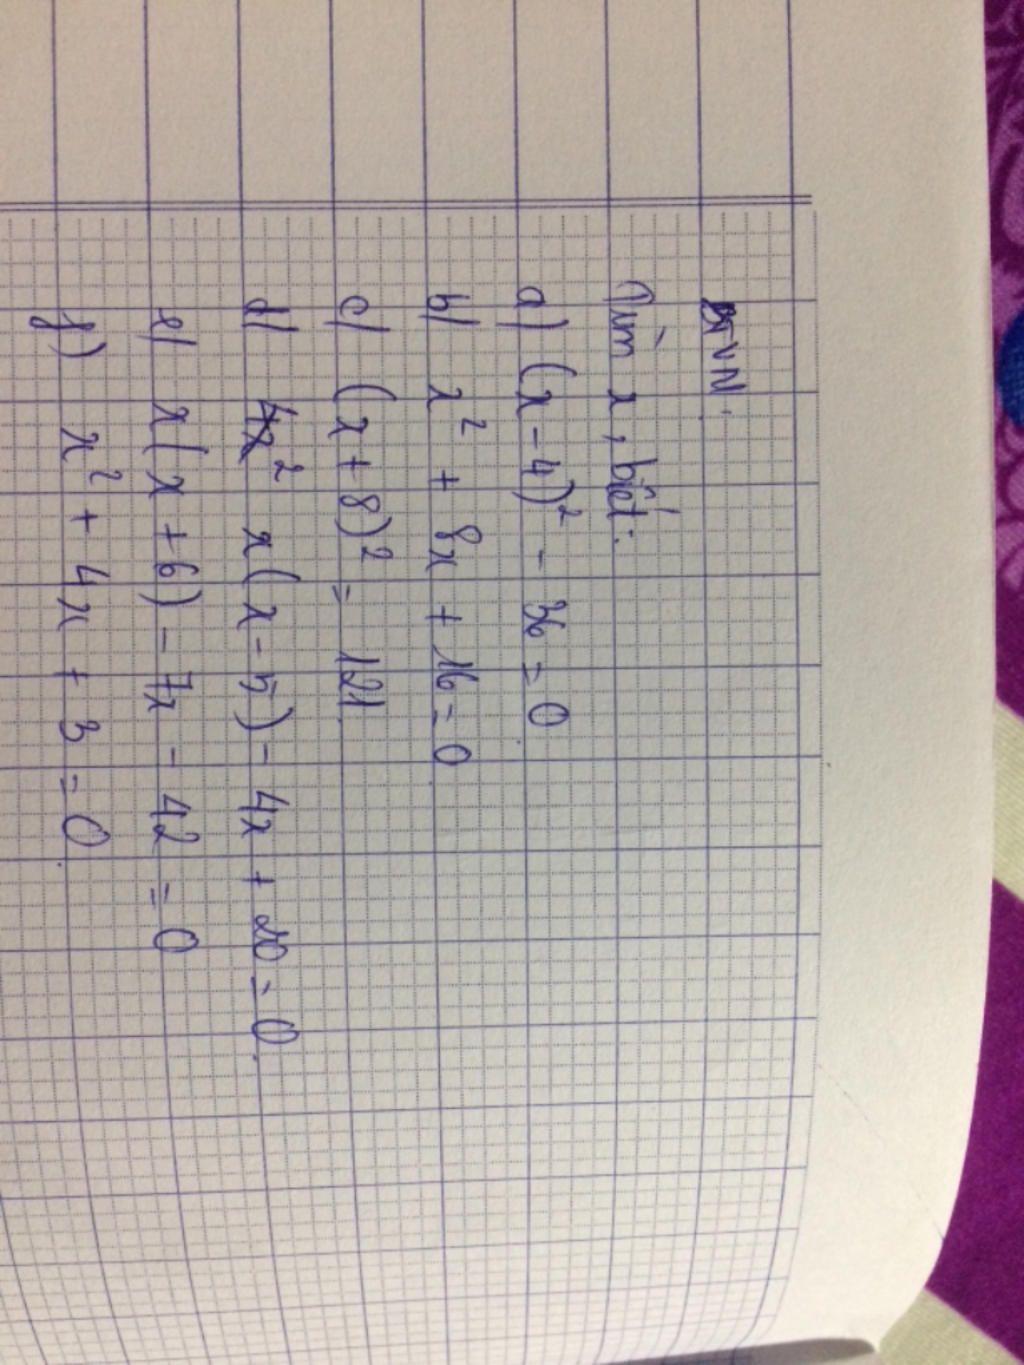 BTVN.
Tìm x, biết:
a) (x - 4)² - 36 = 0
b/ x² + 8x + 16 = 0
c/ (x + 8)² = 121
d/ x(x - 5) - 4x + 20 = 0
e/ x(x + 6) - 7x - 42 = 0
f) x² + 4x + 3 = 0